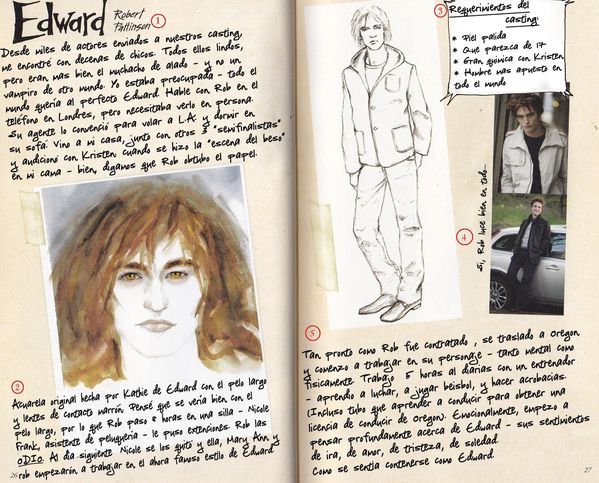 Edward
Robert
Pattinson
1
Desde miles de actores enviados a nuestros casting,
me encontré con decenas de chicos. Todos ellos lindos,
pero eran mas bien el muchacho de alado - y no un
vampiro de otro mundo. Yo estaba preocupada - todo el
mundo queria al perfecto Edward. Hable con Rob en el
telefono en Londres, pero necesitaba verlo en persona.
Su agente lo convenció para volar a L.A. y dormir en
su sofá. Vino a mi casa, junto con otros 3 "semifinalistas"
y audicionó con Kristen. Cuando se hizo la "escena del beso"
en mi cama - bien, digamos que Rob obtubo el papel.
2
Acuarela original hecha por Kathie de Edward con el pelo largo
y lentes de contacto marrón. Pensé que se veria bien con el
pelo largo, por lo que Rob paso 8 horas en una silla - Nicole
Frank, asistente de peluqueria - le puso extenciones. Rob las
ODIO. Al dia siguiente Nicole se los quitó y ella, Mary Ann y
rob empezarón a trabajar en el ahora famoso estilo de Edward
26
3
Requerimientos del
casting:
* Piel palida
* Que parezca de 17
* Gran quimica con Kristen
* Hombre mas apuesto en
todo el mundo
4
Si, Rob luce bien en todo...
5
Tan pronto como Rob fue contratado, se traslado a Oregon
y comenzo a trabajar en su personaje - tanto mental como
fisicamente. Trabajo 5 horas al diarias con un entrenador
- aprendio a luchar, a jugar beisbol, y hacer acrobacias.
(Incluso tubo que aprender a conducir para obtener una
licencia de conducir de Oregon). Emocionalmente, empezo a
pensar profundamente acerca de Edward - sus sentimientos
de ira, de amor, de tristeza, de soledad.
Como se sentia contenerse como Edward.
27